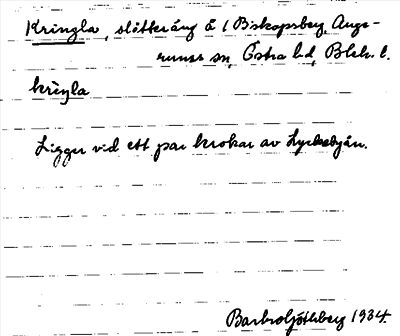 Kringla, slåtteräng å 1 Biskopsberg, Augs-
rums sn, Östra hd, Blek. l.
Ligger vid ett par krokar av Lyckebyån.
Barbro Göthberg 1934.